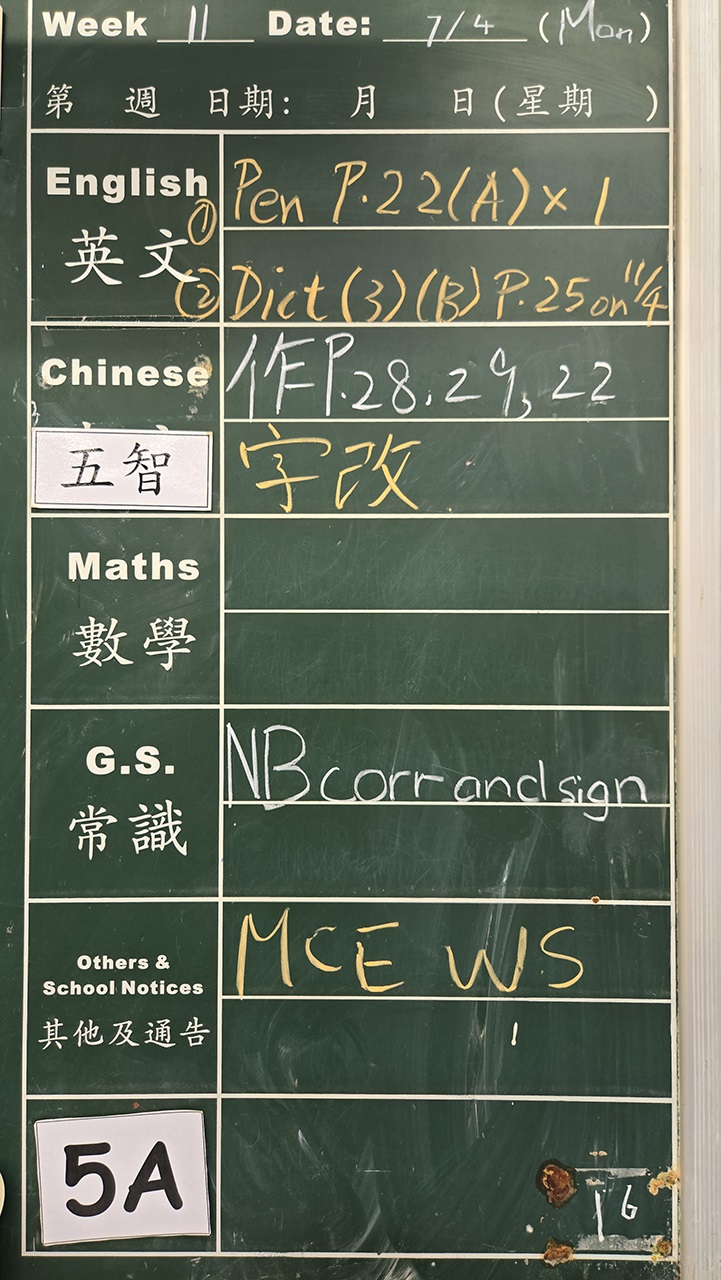 Week 11 Date: 7/4 (Mon)
第 週 日期: 月 日(星期 )
English
英文
① Pen P.22(A)×1
② Dict(3)(B) P.25 on 11/4
Chinese
作P.28,29,22
五智
字改
Maths
數學
G.S.
常識
NB corr and sign
Others &
School Notices
其他及通告
MCE WS
5A
16